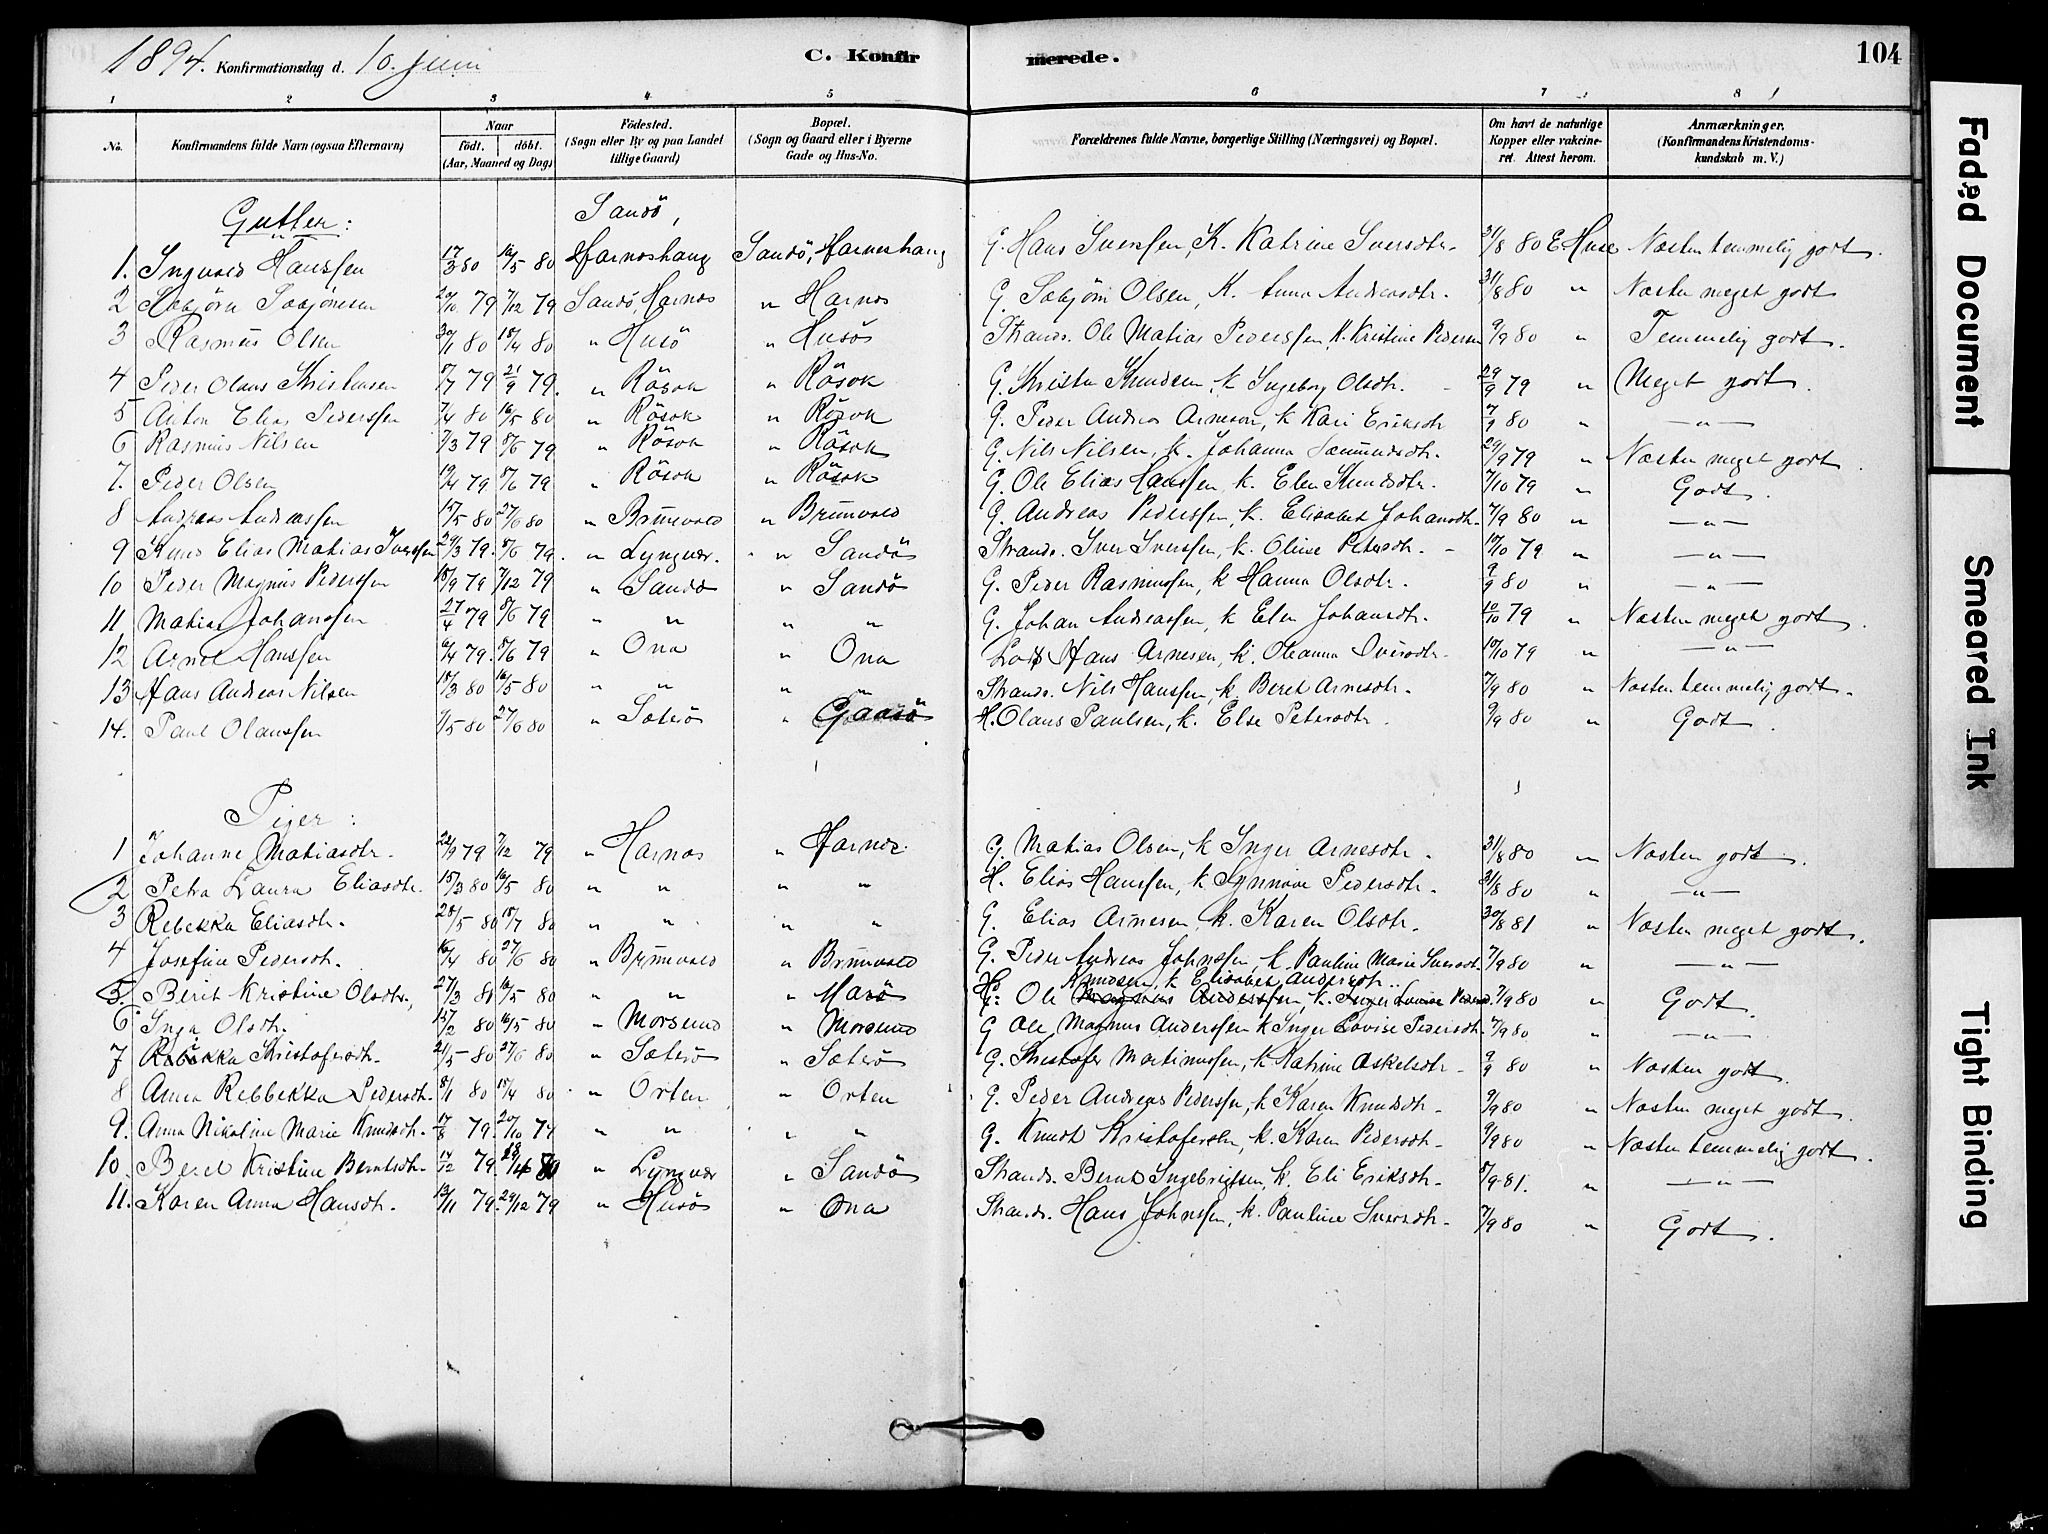 1894. Konfirmationsdag d. 10. Juni C. Konfirmerede. 104
1 2 3 4 5 6 7 8
No. Konfirmandens fulde Navn (ogsaa Efternavn) Naar födt. döbt. (Aar, Maaned og Dag) Födested. (Sogn eller By og paa Landet tillige Gaard) Bopæl. (Sogn og Gaard eller i Byerne Gade og Hus-No. Forældrenes fulde Navne, borgerlige Stilling (Næringsvei) og Bopæl. Om havt de naturlige Kopper eller vakcineret. Attest herom. Anmærkninger. (Konfirmandens Kristendomskundskab m. V.)
Gutter: Sandö,
1. Ingvald Hanssen 17/3 80 16/5 80 Harnöshaug Sandö, Harnöshaug G. Hans Iverssen, K. Katrine Iversdtr. 31/8 80 E. Huse Næsten temmelig godt.
2 Sebjörn Sebjörnsen 20/10 79 7/12 79 Sandö, Harnös " Harnös G. Sebjörn Olsen, K. Anna Andreasdtr. 31/8 80 " Næsten meget godt
3 Rasmus Olsen 30/1 80 18/4 80 " Husö " Husö Strands. Ole Matias Pederssen, K. Kristine Pedersen 9/9 80 " Temmelig godt.
4 Peder Olaus Kristensen 8/7 79 21/9 79. " Rösok " Rösok G. Kristen Knudsen, k. Ingeborg Olsdtr. 29/9 79 " Meget godt.
5 Anton Elias Pederssen 7/4 80 16/5 80 " Rösok " Rösok G. Peder Andreas Arnesen, k Kari Eriksdtr 7/9 80 " — " —
6 Rasmus Nilsen 7/3 79 8/6 79 " Rösok " Rösok G. Nils Nilsen, k. Johanna Sæmundsdtr. 29/9 79 " Næsten meget godt.
7. Peder Olsen 19/4 79 8/6 79 " Rösok " Rösok G. Ole Elias Hanssen, k. Elen Knudsdtr. 7/10 79 " Godt.
8 Andreas Andreassen 15/5 80 27/6 80 " Brunvold " Brunvold G. Andreas Pederssen, k. Elisabet Johansdtr. 7/9 80 " — " —
9 Knud Elias Matias Iverssen 29/3 79. 8/6 79. " Lyngvær. " Sandö Strands. Iver Iverssen, k. Oline Petersdtr. 10/10 79 " — " —
10 Peder Magnus Pederssen 18/9 79 7/12 79 " Sandö " Sandö G. Peder Rasmussen, k Hanna Olsdtr. 9/9 80 " — " —
11 Matias Johanssen 27/4 79 8/6 79 " " " " G. Johan Andreassen, k Elen Johansdtr. 10/10 79 " Næsten meget godt.
12 Arnt Hanssen 6/4 79. 8/6 79 " Ona " Ona Lods Hans Arnesen, k. Oleanna Iversdtr. 10/10 79 " — " —
13 Hans Andreas Nilsen 18/3 80 16/5 80 " " " " Strands. Nils Hanssen, k. Beret Arnesdtr. 7/9 80 " Næsten temmelig godt.
14. Paul Olaussen 9/5 80 27/6 80 " Sæterö " Gaasö H. Olaus Paulsen, k. Else Petersdtr. 9/9 80 " Godt.
Piger:
1 Johanne Matiasdtr. 22/9 79 7/12 79 " Harnös " Harnös. G. Matias Olsen, k Inger Arnesdtr. 31/8 80 " Næsten godt.
2 Petra Laura Eliasdtr. 15/3 80 16/5 80 " " " " H. Elias Hanssen, k. Synnøve Pedersdtr. 31/8 80 " — " —
3 Rebekka Eliasdtr. 28/5 80 18/7 80 " " " " G. Elias Arnesen, k. Karen Olsdtr. 30/8 81 " Næsten meget godt.
4 Josefine Pedersdtr. 16/4 80 27/6 80 " Brunvold " Brunvold G. Peder Andreas Johnssen, k. Pauline Marie Iversdtr. 7/9 80 " — " —
Knudsen, k Elisabet Andersdtr.
5. Berit Kristine Olsdtr. 27/3 80 16/5 80 " " " Marö H. Ole Magnus Anderssen, k. Inger Lovise Pedersd. 7/9 80 " Godt.
6 Inga Olsdtr. 15/2 80 16/5 80 " Morsund " Morsund G Ole Magnus Anderssen k Inger Lovise Pedersdtr. 7/9 80 " — " —
7 Rebekka Kristofersdtr. 21/5 80 27/6 80 " Sæterö " Sæterö G. Kristofer Martinussen, k Katrine Askelsdtr. 9/9 80 " Næsten godt.
8 Anna Rebbekka Pedersdtr. 8/1 80 18/4 80 " Orten " Orten G. Peder Andreas Pederssen, k Karen Knudsdtr. 9/9 80 " Næsten meget godt.
9. Anna Nikoline Marie Knudsdtr. 17/8 79. 20/10 74 " " " " G. Knudt Kristoferssen, k. Karen Pedersdtr. 9/9 80 " Næsten temmelig godt.
10. Beret Kristine Berntsdtr. 14/12 79 " Lyngvær " Sandö Strands. Bernt Ingebrigtsen, k. Eli Eriksdtr. 8/9 81. " — " —
11. Karen Anna Hansdtr. 13/11 79. 29/12 79 " Husö " Ona Strands. Hans Johnssen, k. Pauline Iversdtr. 7/9 80 " Godt.
Faded Document
Smeared Ink
Tight Binding